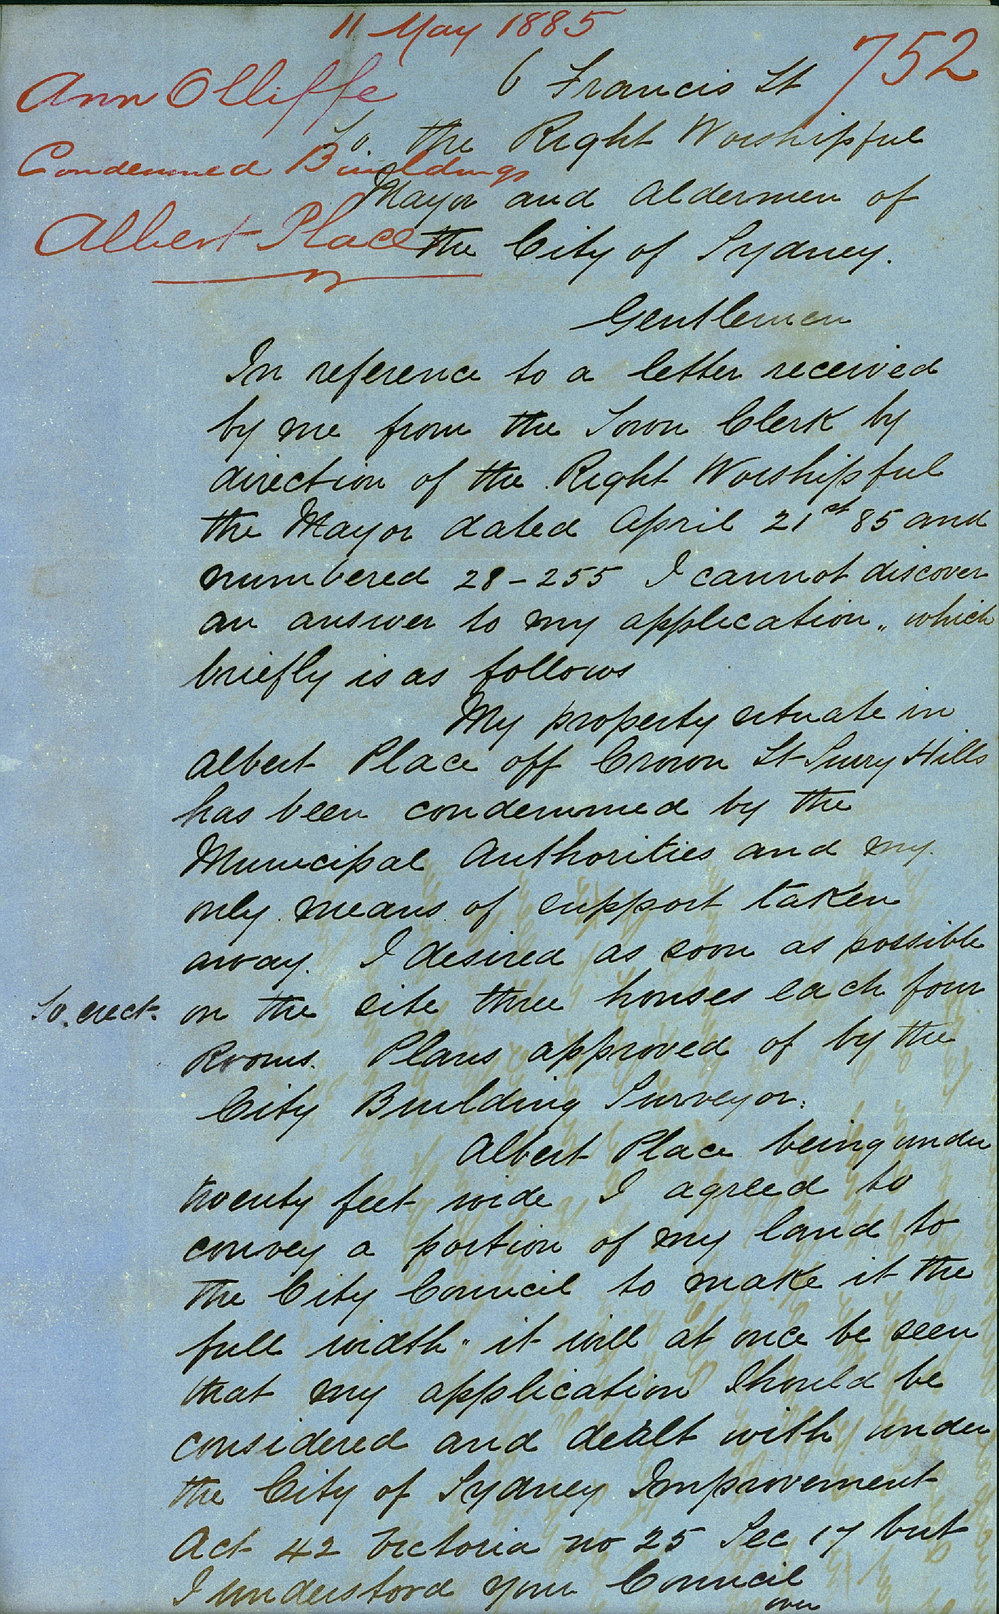 11 May 1885
752
Ann Olliffe
Condemned Buildings
Albert Place
6 Francis St
To the Right Worshipful
Mayor and Aldermen of
the City of Sydney.
Gentlemen
In reference to a letter received
by me from the Town Clerk by
direction of the Right Worshipful
the Mayor dated April 21st 85 and
numbered 28-255 I cannot discover
an answer to my application, which
briefly is as follows
My property situate in
Albert Place off Crown St Surry Hills
has been condemned by the
Municipal Authorities and my
only means of support taken
away. I desired as soon as possible
To erect on the site three houses each four
Rooms. Plans approved of by the
City Building Surveyor.
Albert Place being under
twenty feet wide I agreed to
convey a portion of my land to
the City Council to make it the
full width. it will at once be seen
that my application should be
considered and dealt with under
the City of Sydney Improvement
Act 42 Victoria no 25 Sec 17 but
I understood your Council
over